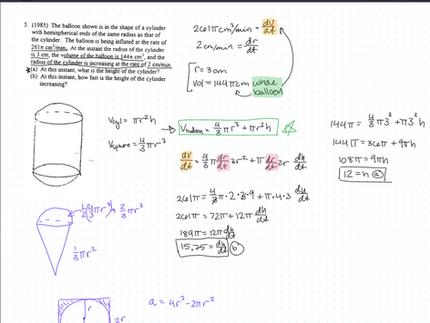 3. (1985) The balloon shown is in the shape of a cylinder
with hemispherical ends of the same radius as that of
the cylinder. The balloon is being inflated at the rate of
261π cm³/min. At the instant the radius of the cylinder
is 3 cm, the volume of the balloon is 144π cm³, and the
radius of the cylinder is increasing at the rate of 2 cm/min.
(a) At this instant, what is the height of the cylinder?
(b) At this instant, how fast is the height of the cylinder
increasing?
261π cm³/min = dV/dt
2 cm/min = dr/dt
r = 3cm
Vol = 144π cm whole balloon
Vcyl = πr²h
Vsphere = 4/3 πr³
Vballoon = 4/3 πr³ + πr²h
dV/dt = 4/3 π dr/dt 3r² + π dr/dt 2r dh/dt
261π = 4/3 π · 2 · 3 · 9 + π · 4 · 3 dh/dt
261π = 72π + 12π dh/dt
189π = 12π dh/dt
15.75 = dh/dt (b)
144π = 4/3 π3³ + π3²h
144π = 36π + 9πh
108π = 9πh
12 = h (a)
2/3 πr³
1/3 πr²
a = 4r² - 2πr²
r
2r